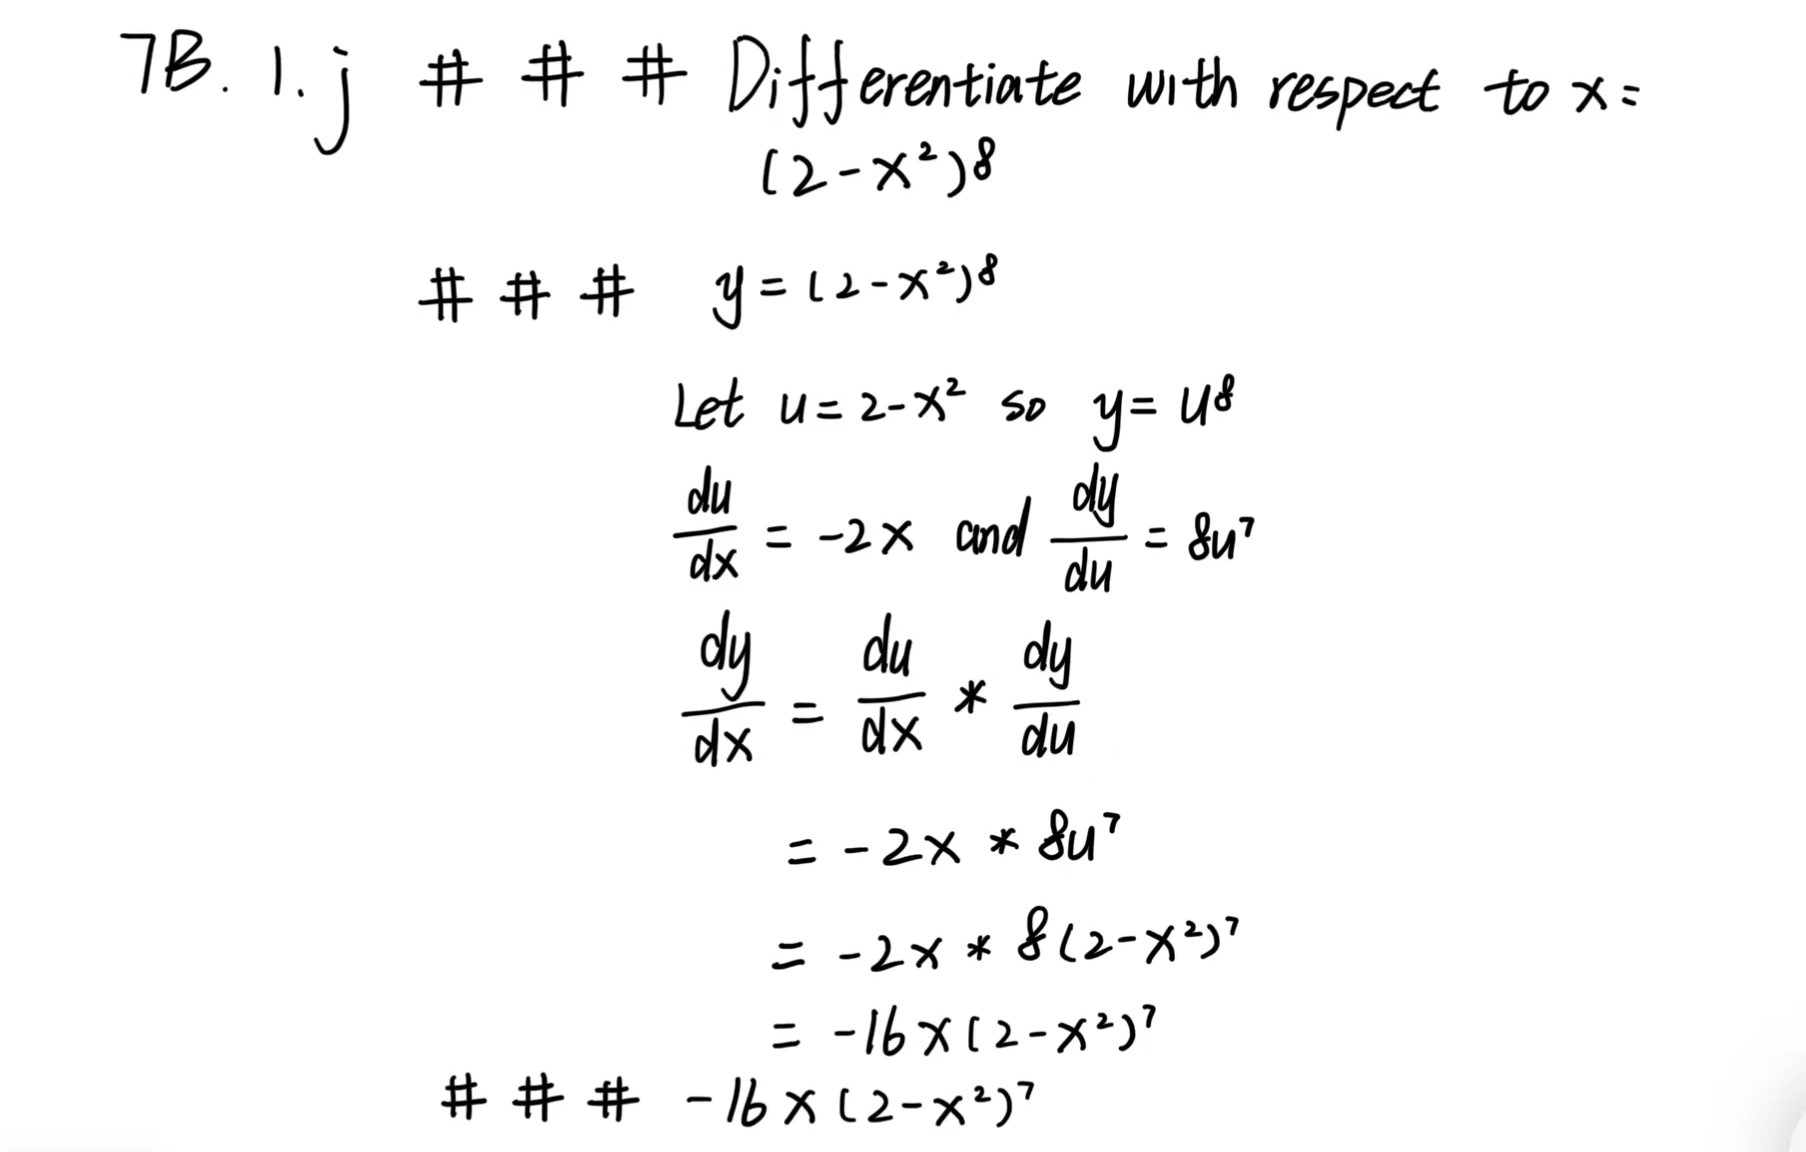 7B. 1. j # # # Differentiate with respect to x =
(2-x²)⁸
# # # y = (2-x²)⁸
Let u = 2-x² so y = u⁸
du/dx = -2x and dy/du = 8u⁷
dy/dx = du/dx * dy/du
= -2x * 8u⁷
= -2x * 8(2-x²)⁷
= -16x(2-x²)⁷
# # # -16x(2-x²)⁷